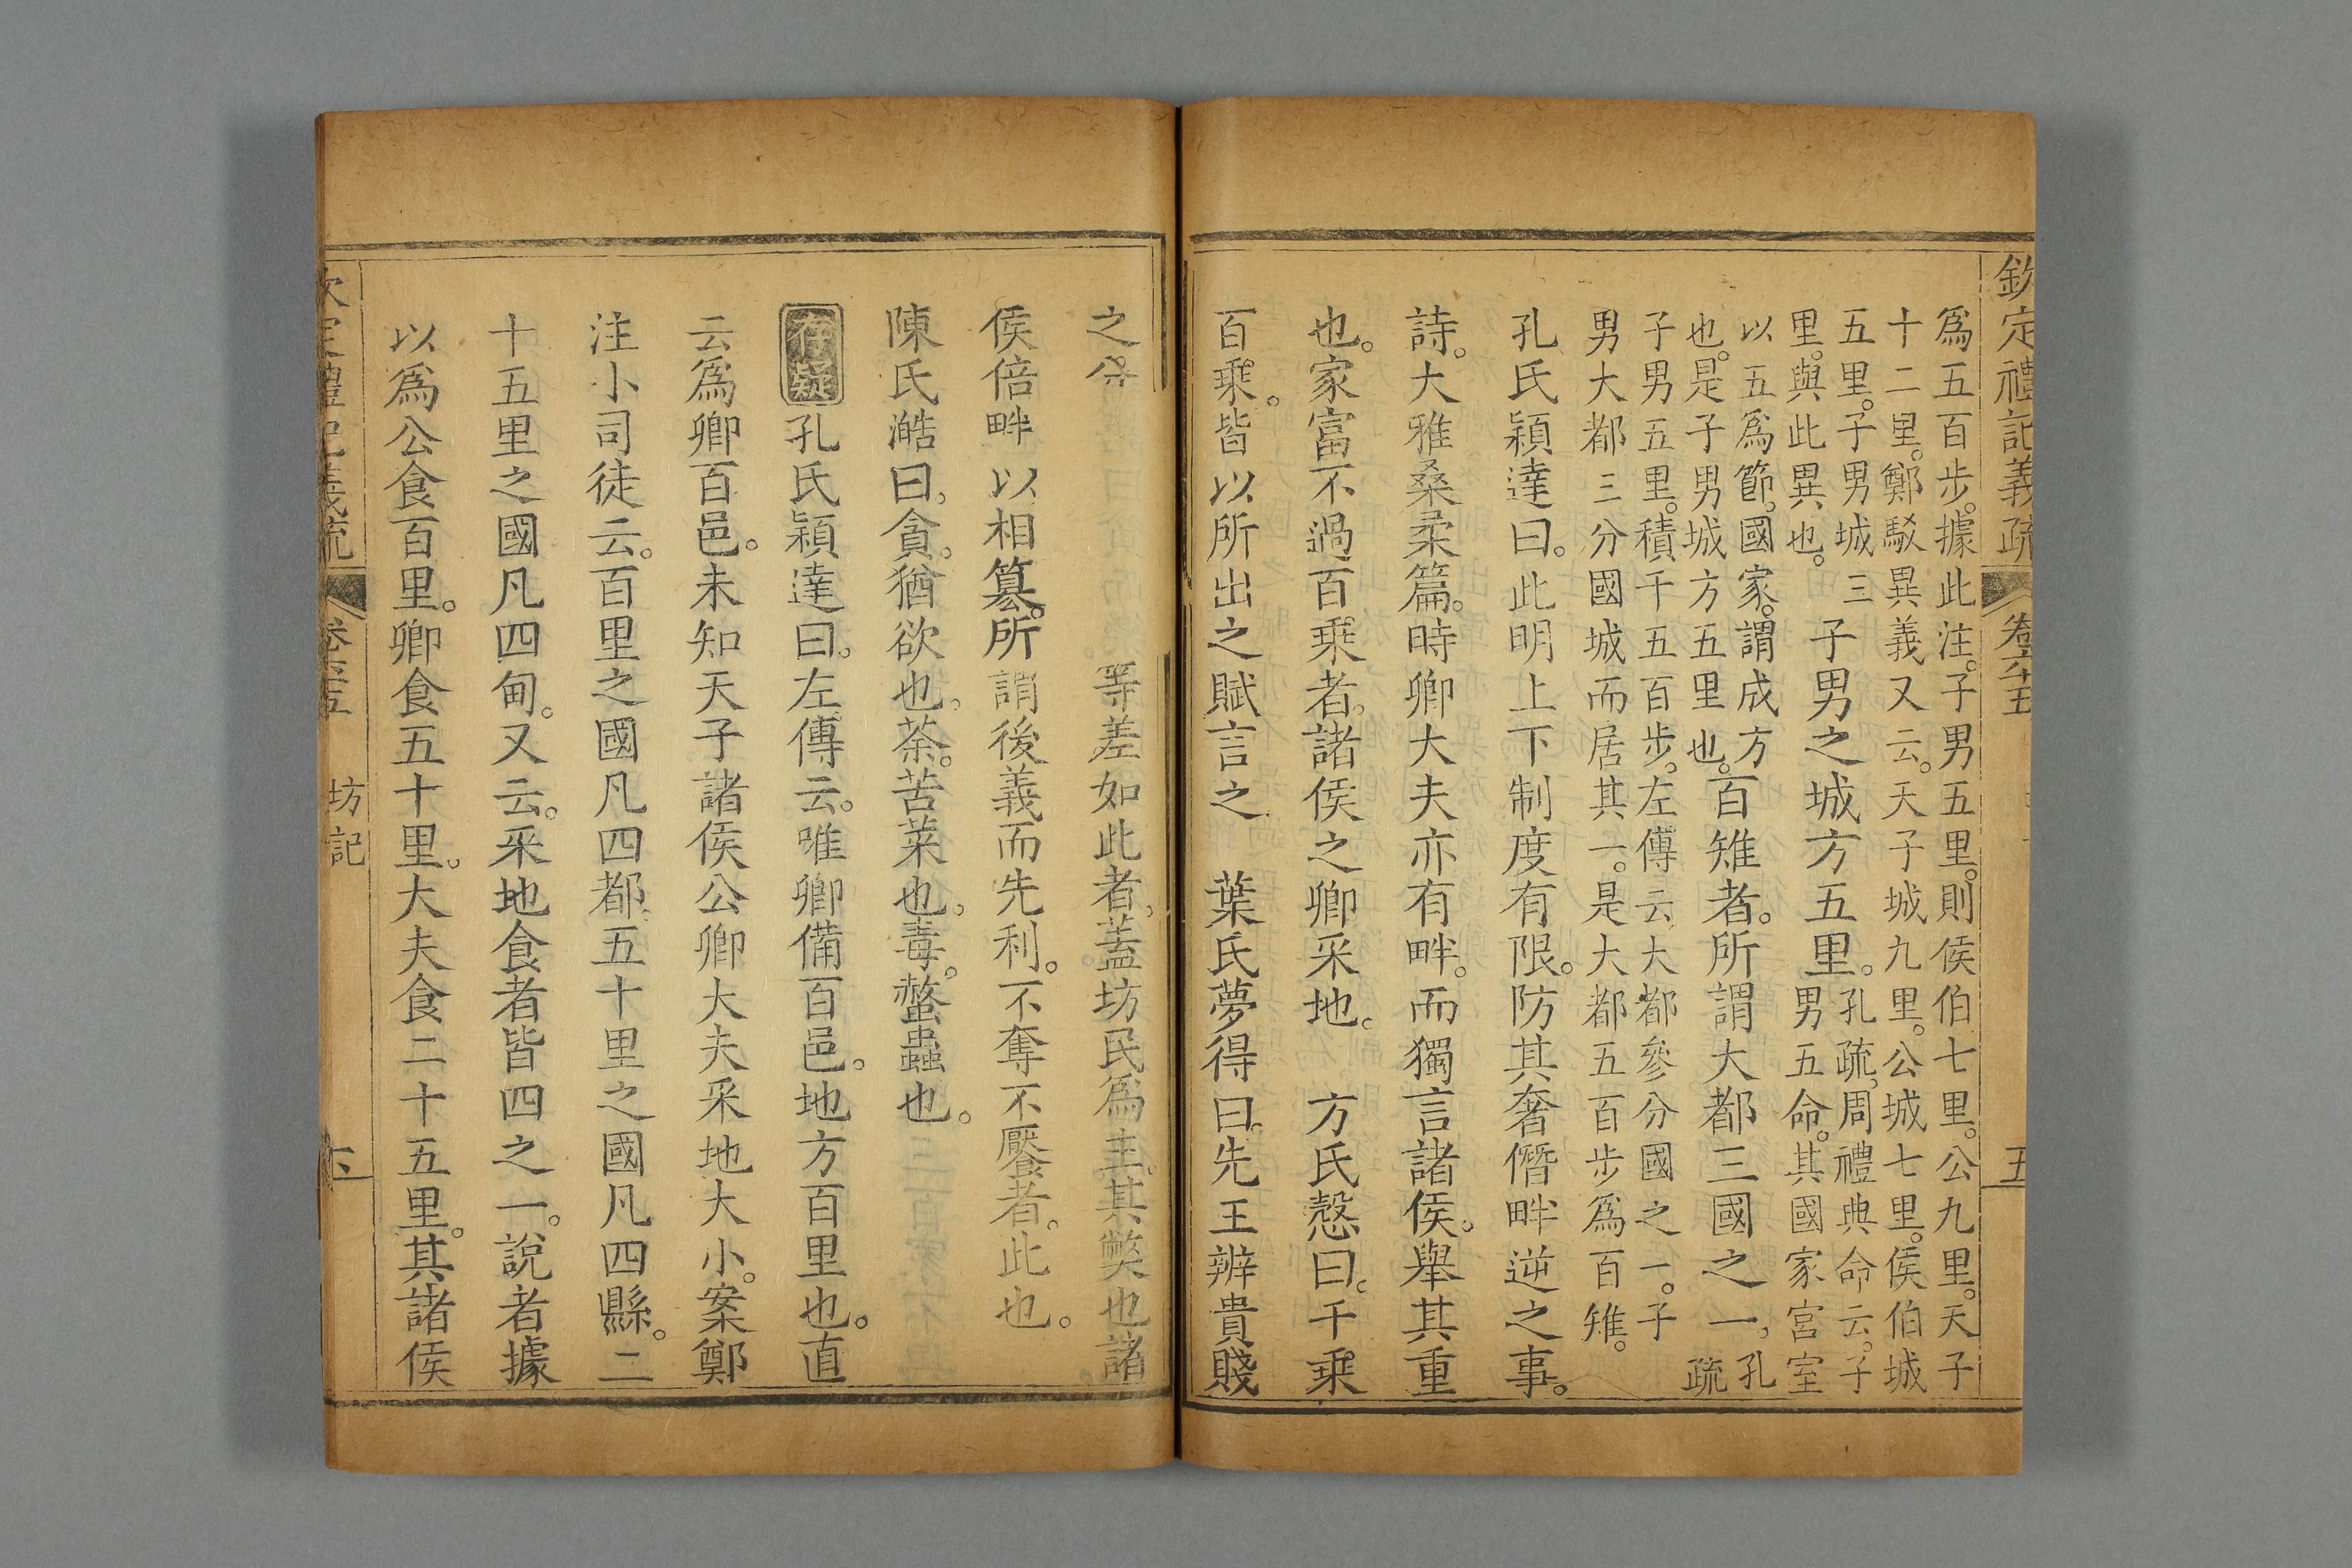 欽定禮記義疏 卷六十五 五
爲五百步。據此注。子男五里。則侯伯七里。公九里。天子
十二里。鄭駁異義又云。天子城九里。公城七里。侯伯城
五里。子男城三
里。與此異也。
子男之城方五里。
孔疏。周禮典命云。子
男五命。其國家宮室
以五爲節。國家。謂成方
也。是子男城方五里也。
百雉者。所謂大都三國之一。
孔
疏
子男五里。積千五百步。左傳云大都參分國之一。子
男大都三分國城而居其一。是大都五百步爲百雉。
孔氏穎達曰。此明上下制度有限。防其奢僭畔逆之事。
詩。大雅桑柔篇。時卿大夫亦有畔。而獨言諸侯。舉其重
也。家富不過百乘者。諸侯之卿采地。 方氏慤曰。千乘
百乘。皆以所出之賦言之 葉氏夢得曰。先王辨貴賤
之 等差如此者。蓋坊民爲主。其獘也諸
侯倍畔以相簒。所謂後義而先利。不奪不饜者。此也。
陳氏澔曰。貪。猶欲也。荼。苦菜也。毒。螫蟲也。
存疑 孔氏穎達曰。左傳云。唯卿備百邑。地方百里也。直
云爲卿百邑。未知天子諸侯公卿大夫采地大小。案鄭
注小司徒云。百里之國凡四都。五十里之國凡四縣。二
十五里之國凡四甸。又云。采地食者皆四之一。說者據
以爲公食百里。卿食五十里。大夫食二十五里。其諸侯
欽定禮記義疏 卷六十五 坊記